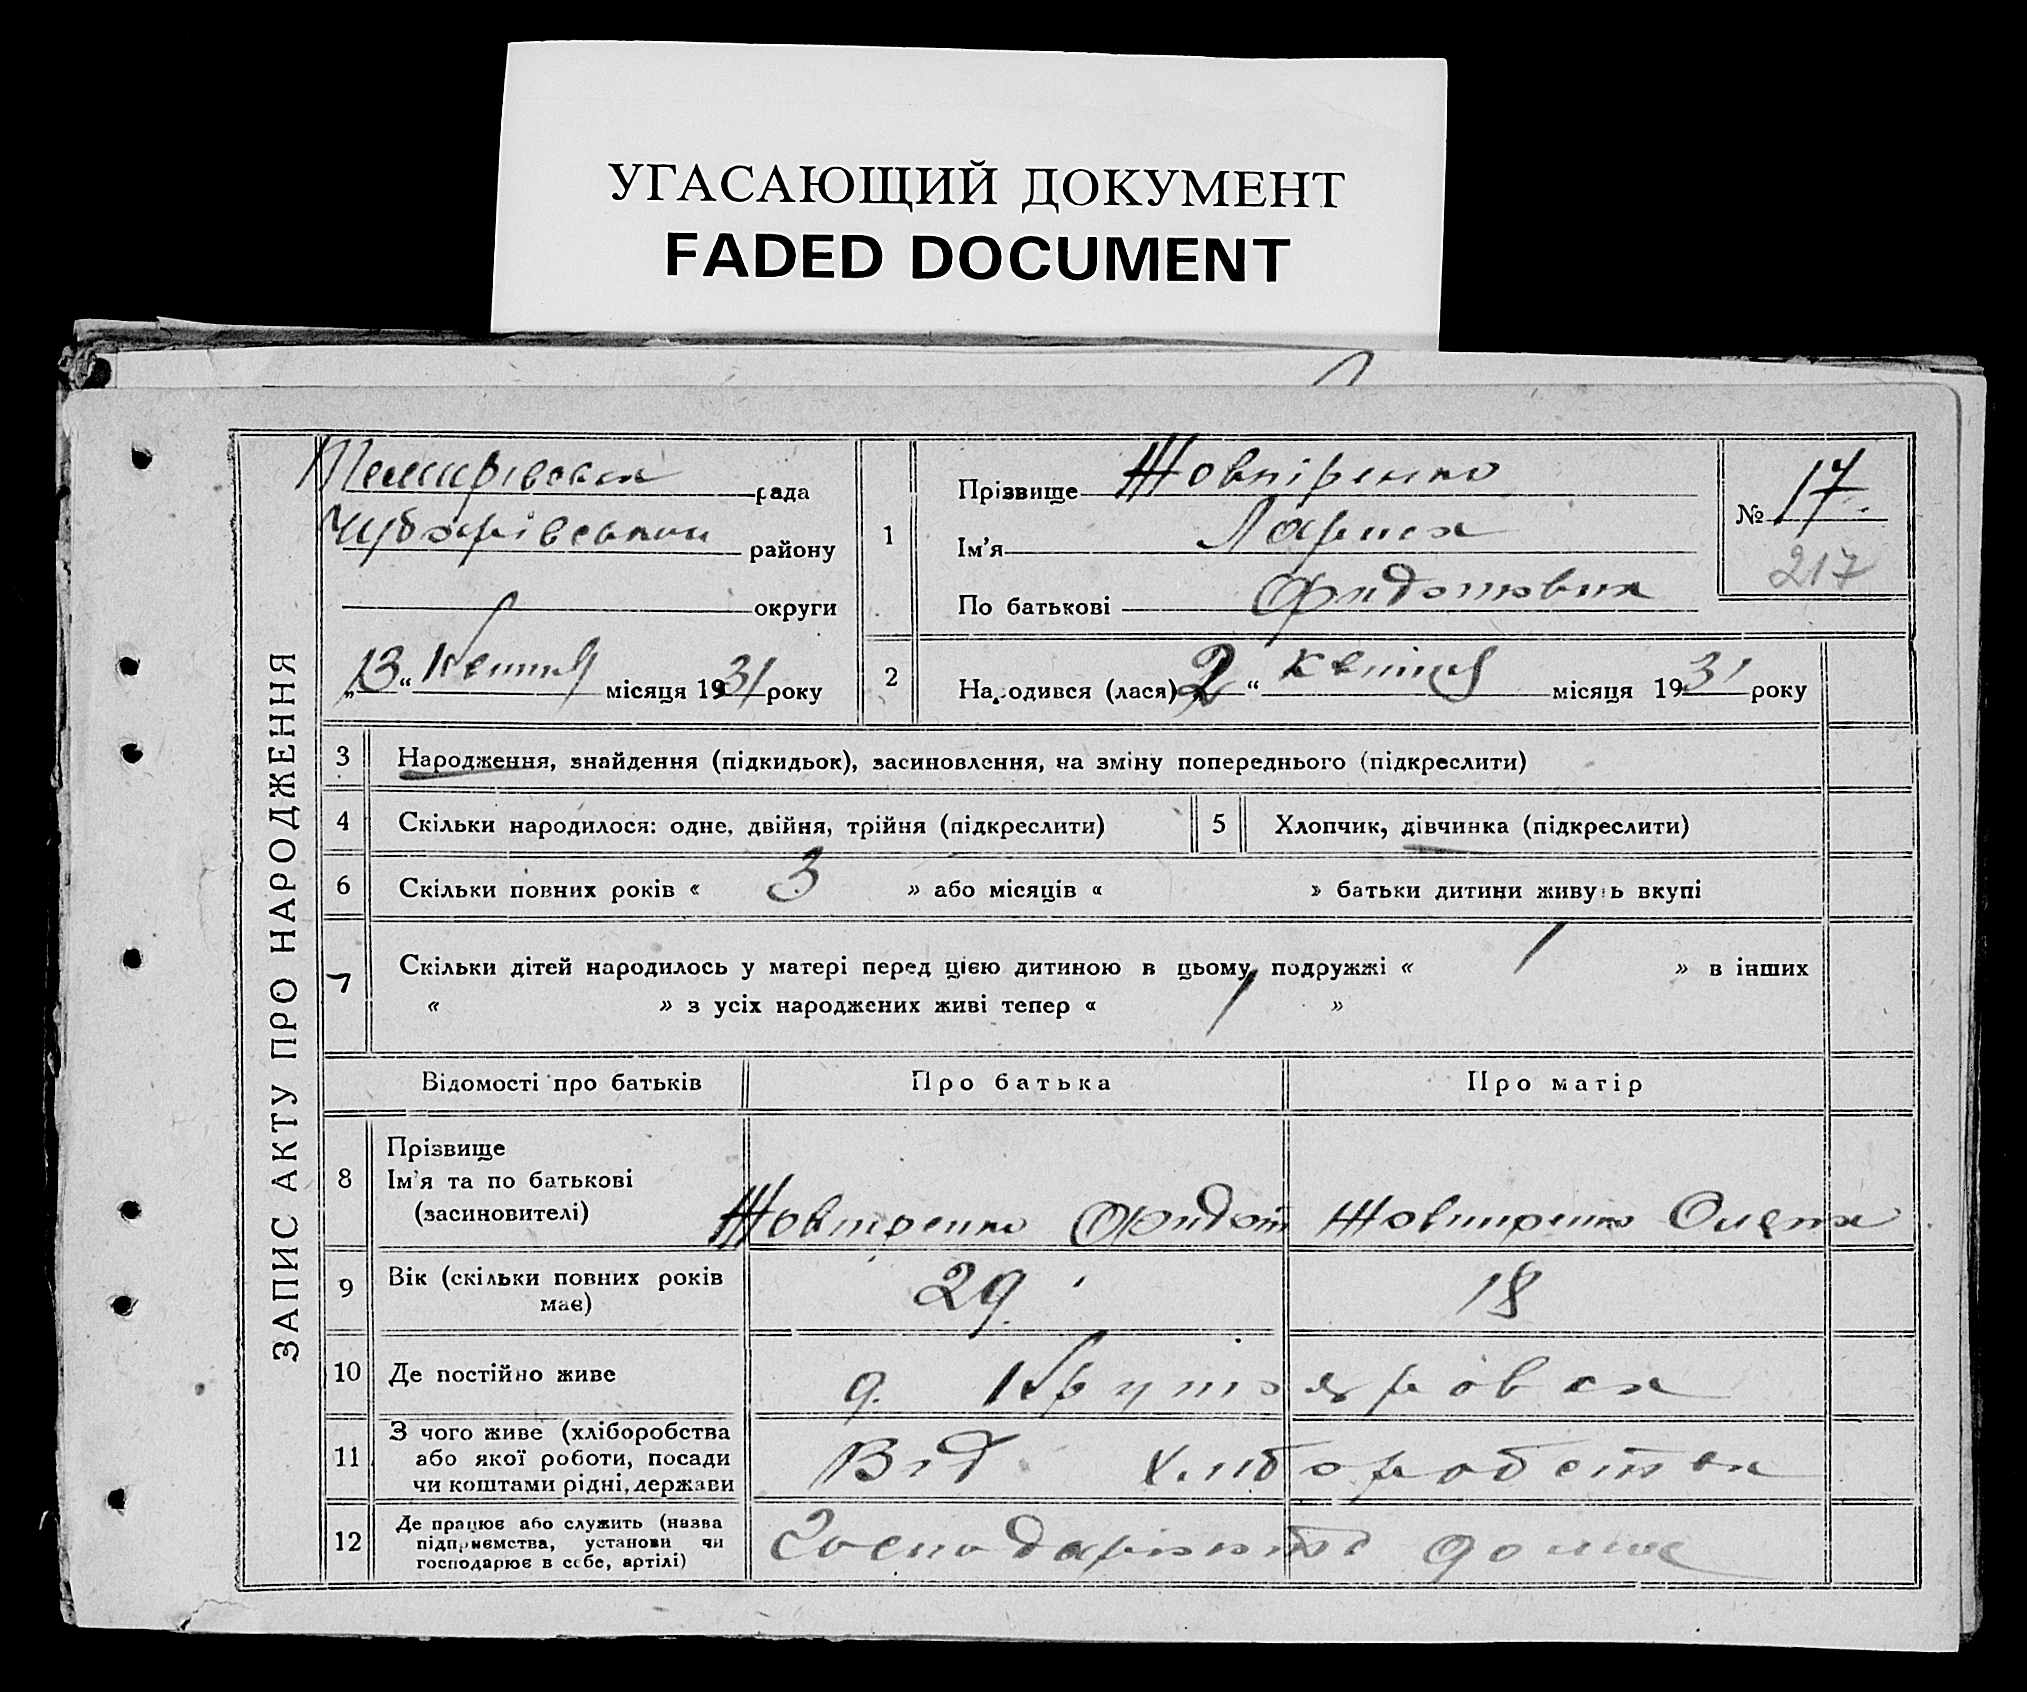 УГАСАЮЩИЙ ДОКУМЕНТ
FADED DOCUMENT
ЗАПИС АКТУ ПРО НАРОДЖЕННЯ
Темирівська рада
Чубарівський району
округи
„13“ Квітня місяця 1931 року
1
Прізвище
Ім'я Лариса
По батькові Федотовна
№ 17.
217
2
Народився (лася) „2“ Квітня місяця 1931 року
3 Народження, знайдення (підкидьок), засиновлення, на зміну попереднього (підкреслити)
4 Скільки народилося: одне, двійня, трійня (підкреслити)
5 Хлопчик, дівчинка (підкреслити)
6 Скільки повних років « 3 » або місяців « » батьки дитини живуть вкупі
7 Скільки дітей народилось у матері перед цією дитиною в цьому подружжі « 1 » в інших
« » з усіх народжених живі тепер « 1 »
Відомості про батьків Про батька Про матір
8 Прізвище
Ім'я та по батькові
(засиновителі)
Федот Олена
9 Вік (скільки повних років
має)
29. 18
10 Де постійно живе
с. Крутояровка
11 З чого живе (хліборобства
або якої роботи, посади
чи коштами рідні, держави
Від хліборобства
12 Де працює або служить (назва
підприємства, установи чи
господарює в себе, артілі)